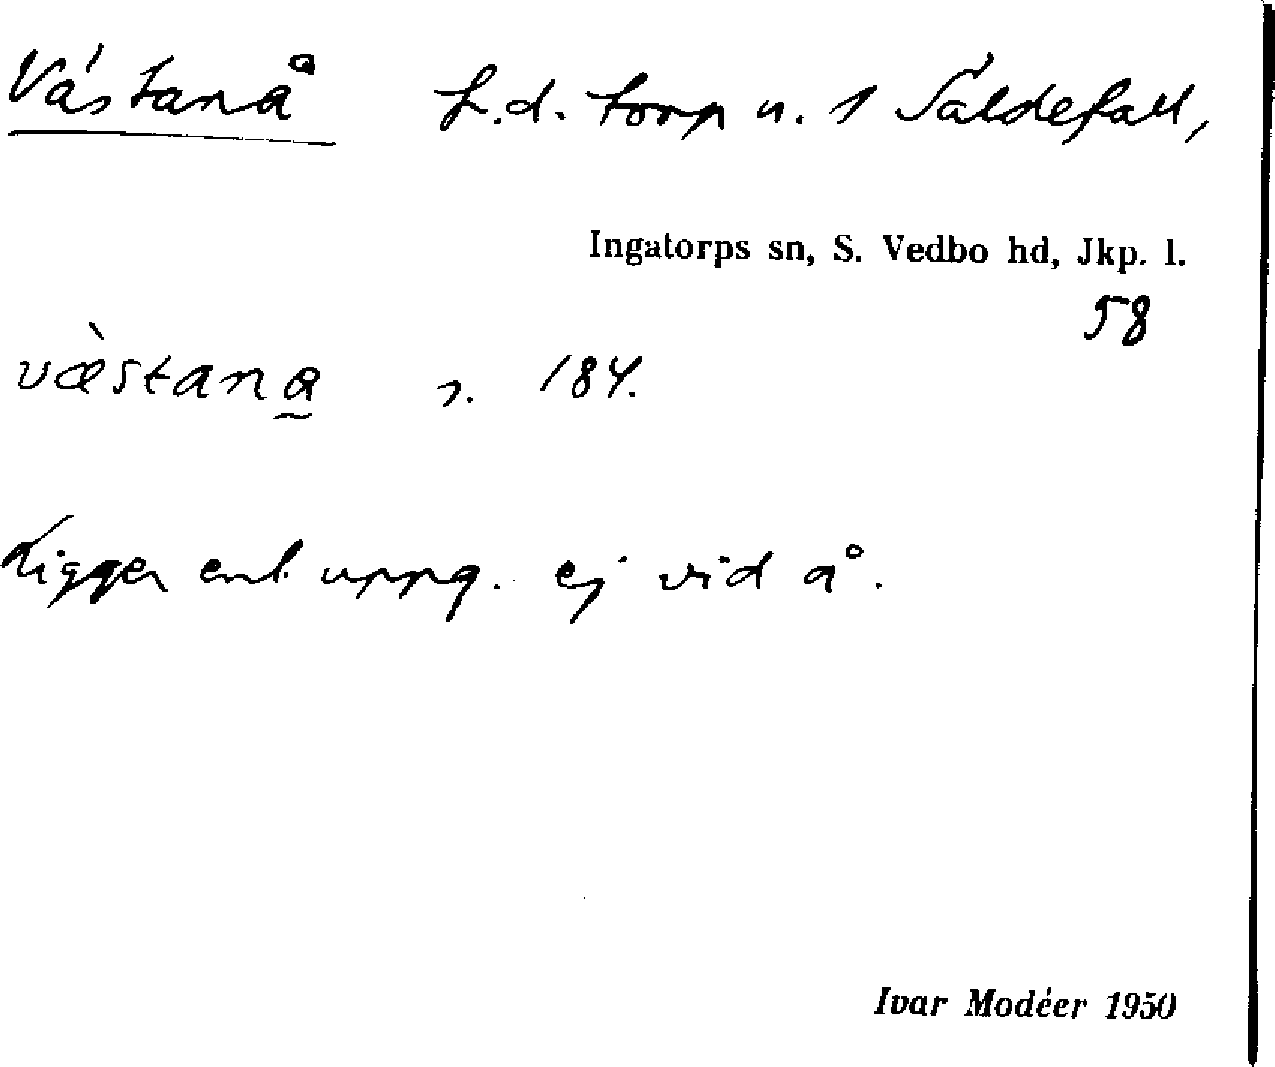 Västanå f.d. torp u. 1 Säldefall,
Ingatorps sn, S. Vedbo hd, Jkp. l.
58
væ̀stanå̰ s. 184.
Ligger enl. uppg. ej vid å.
Ivar Modéer 1950